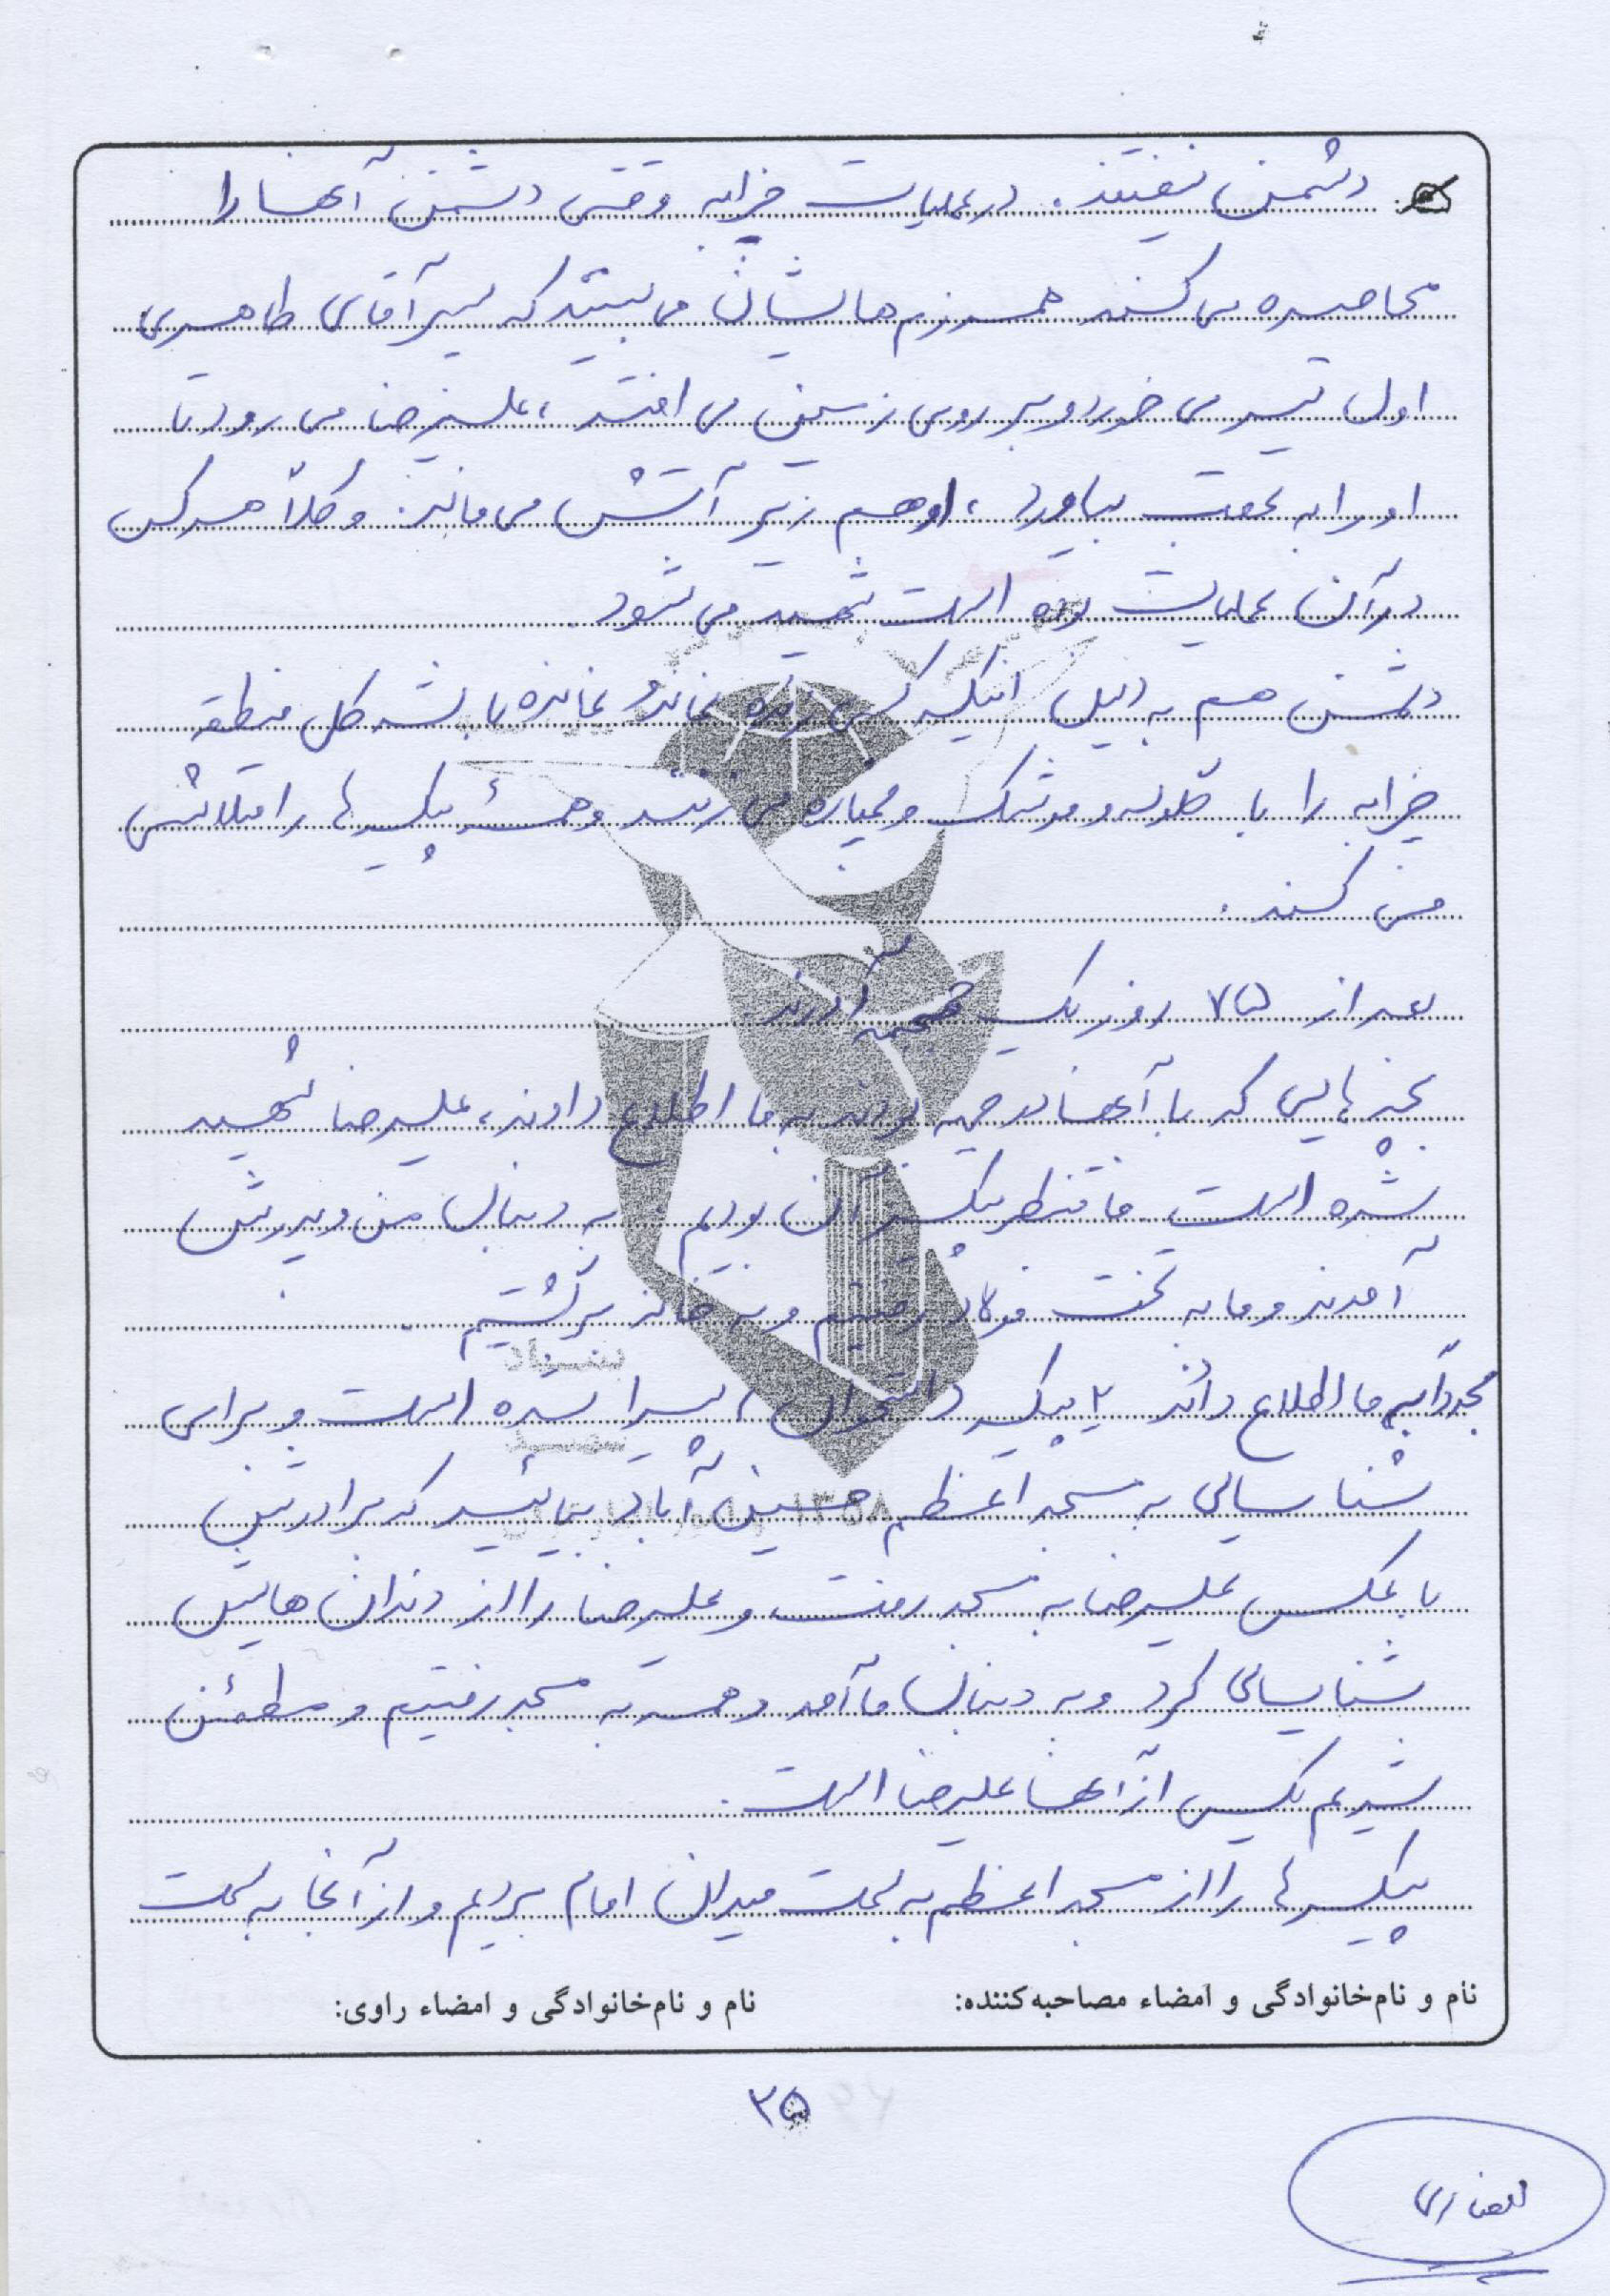 دشمن نیفتند. در عملیات خرابه وقتی دشمن آنها را
محاصره می کنند همرزم هایشان می بینند که پسر آقای طاهری
اول تیر می خورد و بر روی زمین می افتد، علیرضا می رود تا
او را به عقب بیاورد، او هم زیر آتش می ماند. و کلاً هر کس
در آن عملیات بوده است شهید می شود.
دشمن هم به دلیل اینکه کسی زنده نماند و نمانده باشد کل منطقه
خرابه را با گلوله و موشک و خمپاره می زنند و همهٔ پیکرها را متلاشی
می کنند.
بعد از ۷۵ روز یک جمجمه آوردند
بچه هایی که با آنها در جبهه بودند به ما اطلاع دادند، علیرضا شهید
شده است ما منتظر پیکر آن بودیم به دنبال من و پدرش
آمدند و ما به تخت فولاد رفتیم و به خانه برگشتیم.
مجدداً به ما اطلاع دادند ۲ پیکر (استخوان) پیدا شده است و برای
شناسایی به مسجد اعظم حسین آباد بیائید که برادرش
با عکس علیرضا به مسجد رفت و علیرضا را از دندان هایش
شناسایی کرد و به دنبال ما آمد و همه به مسجد رفتیم و مطمئن
شدیم یکی از آنها علیرضا است.
پیکرها را از مسجد اعظم به سمت میدان امام بردیم و از آنجا به سمت
نام و نام‌خانوادگی و امضاء مصاحبه‌کننده: نام و نام‌خانوادگی و امضاء راوی:
۳۵